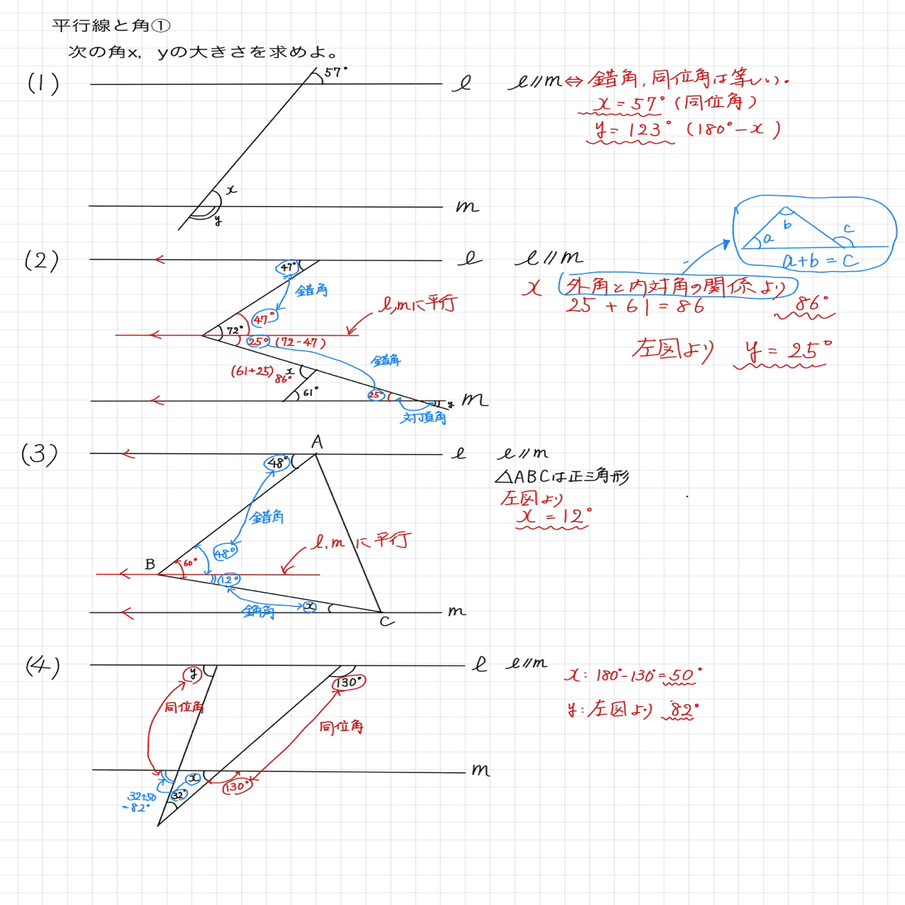 平行線と角①
次の角x, yの大きさを求めよ。
(1)
57°
l
x
y
m
l//m⇔錯角,同位角は等しい.
x = 57° (同位角)
y = 123° (180° - x)
(2)
47°
l
錯角
47°
72°
25° (72-47)
l,mに平行
錯角
(61+25) 86°
x
61°
25°
y
m
対頂角
l//m
x 外角と内対角の関係より
25 + 61 = 86
86°
左図より y = 25°
a
b
c
a+b = c
(3)
A
48°
l
錯角
48°
B
60°
l,mに平行
12°
錯角
x
m
C
l//m
△ABCは正三角形
左図より
x = 12°
(4)
y
130°
l
同位角
同位角
x
m
130°
32°
32+50
=82°
l//m
x: 180°-130°=50°
y: 左図より 82°